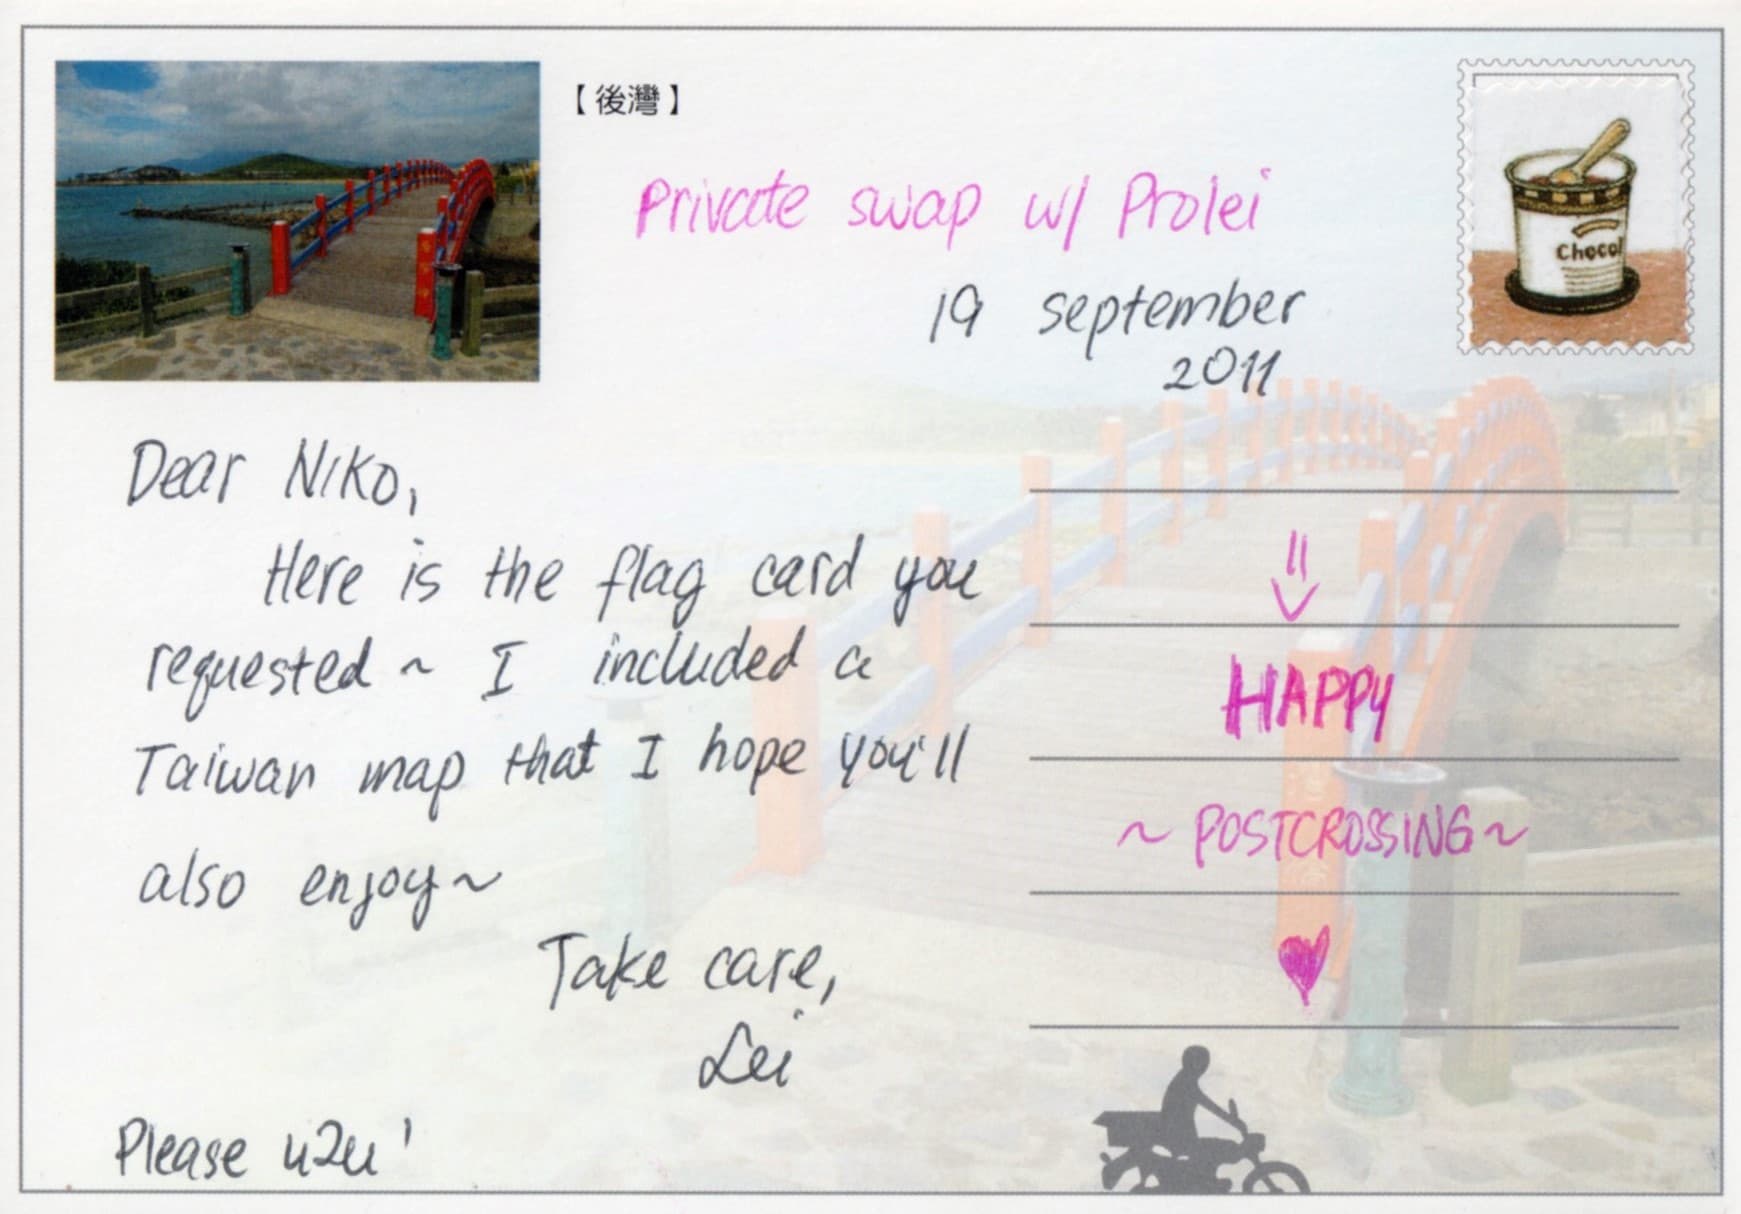 【後灣】
Private swap w/ Prolei
19 september
2011
Chocol
Dear Niko,
Here is the flag card you
requested ~ I included a
Taiwan map that I hope you'll
also enjoy ~
Take care,
Lei
Please u2u'
HAPPY
~ POSTCROSSING ~